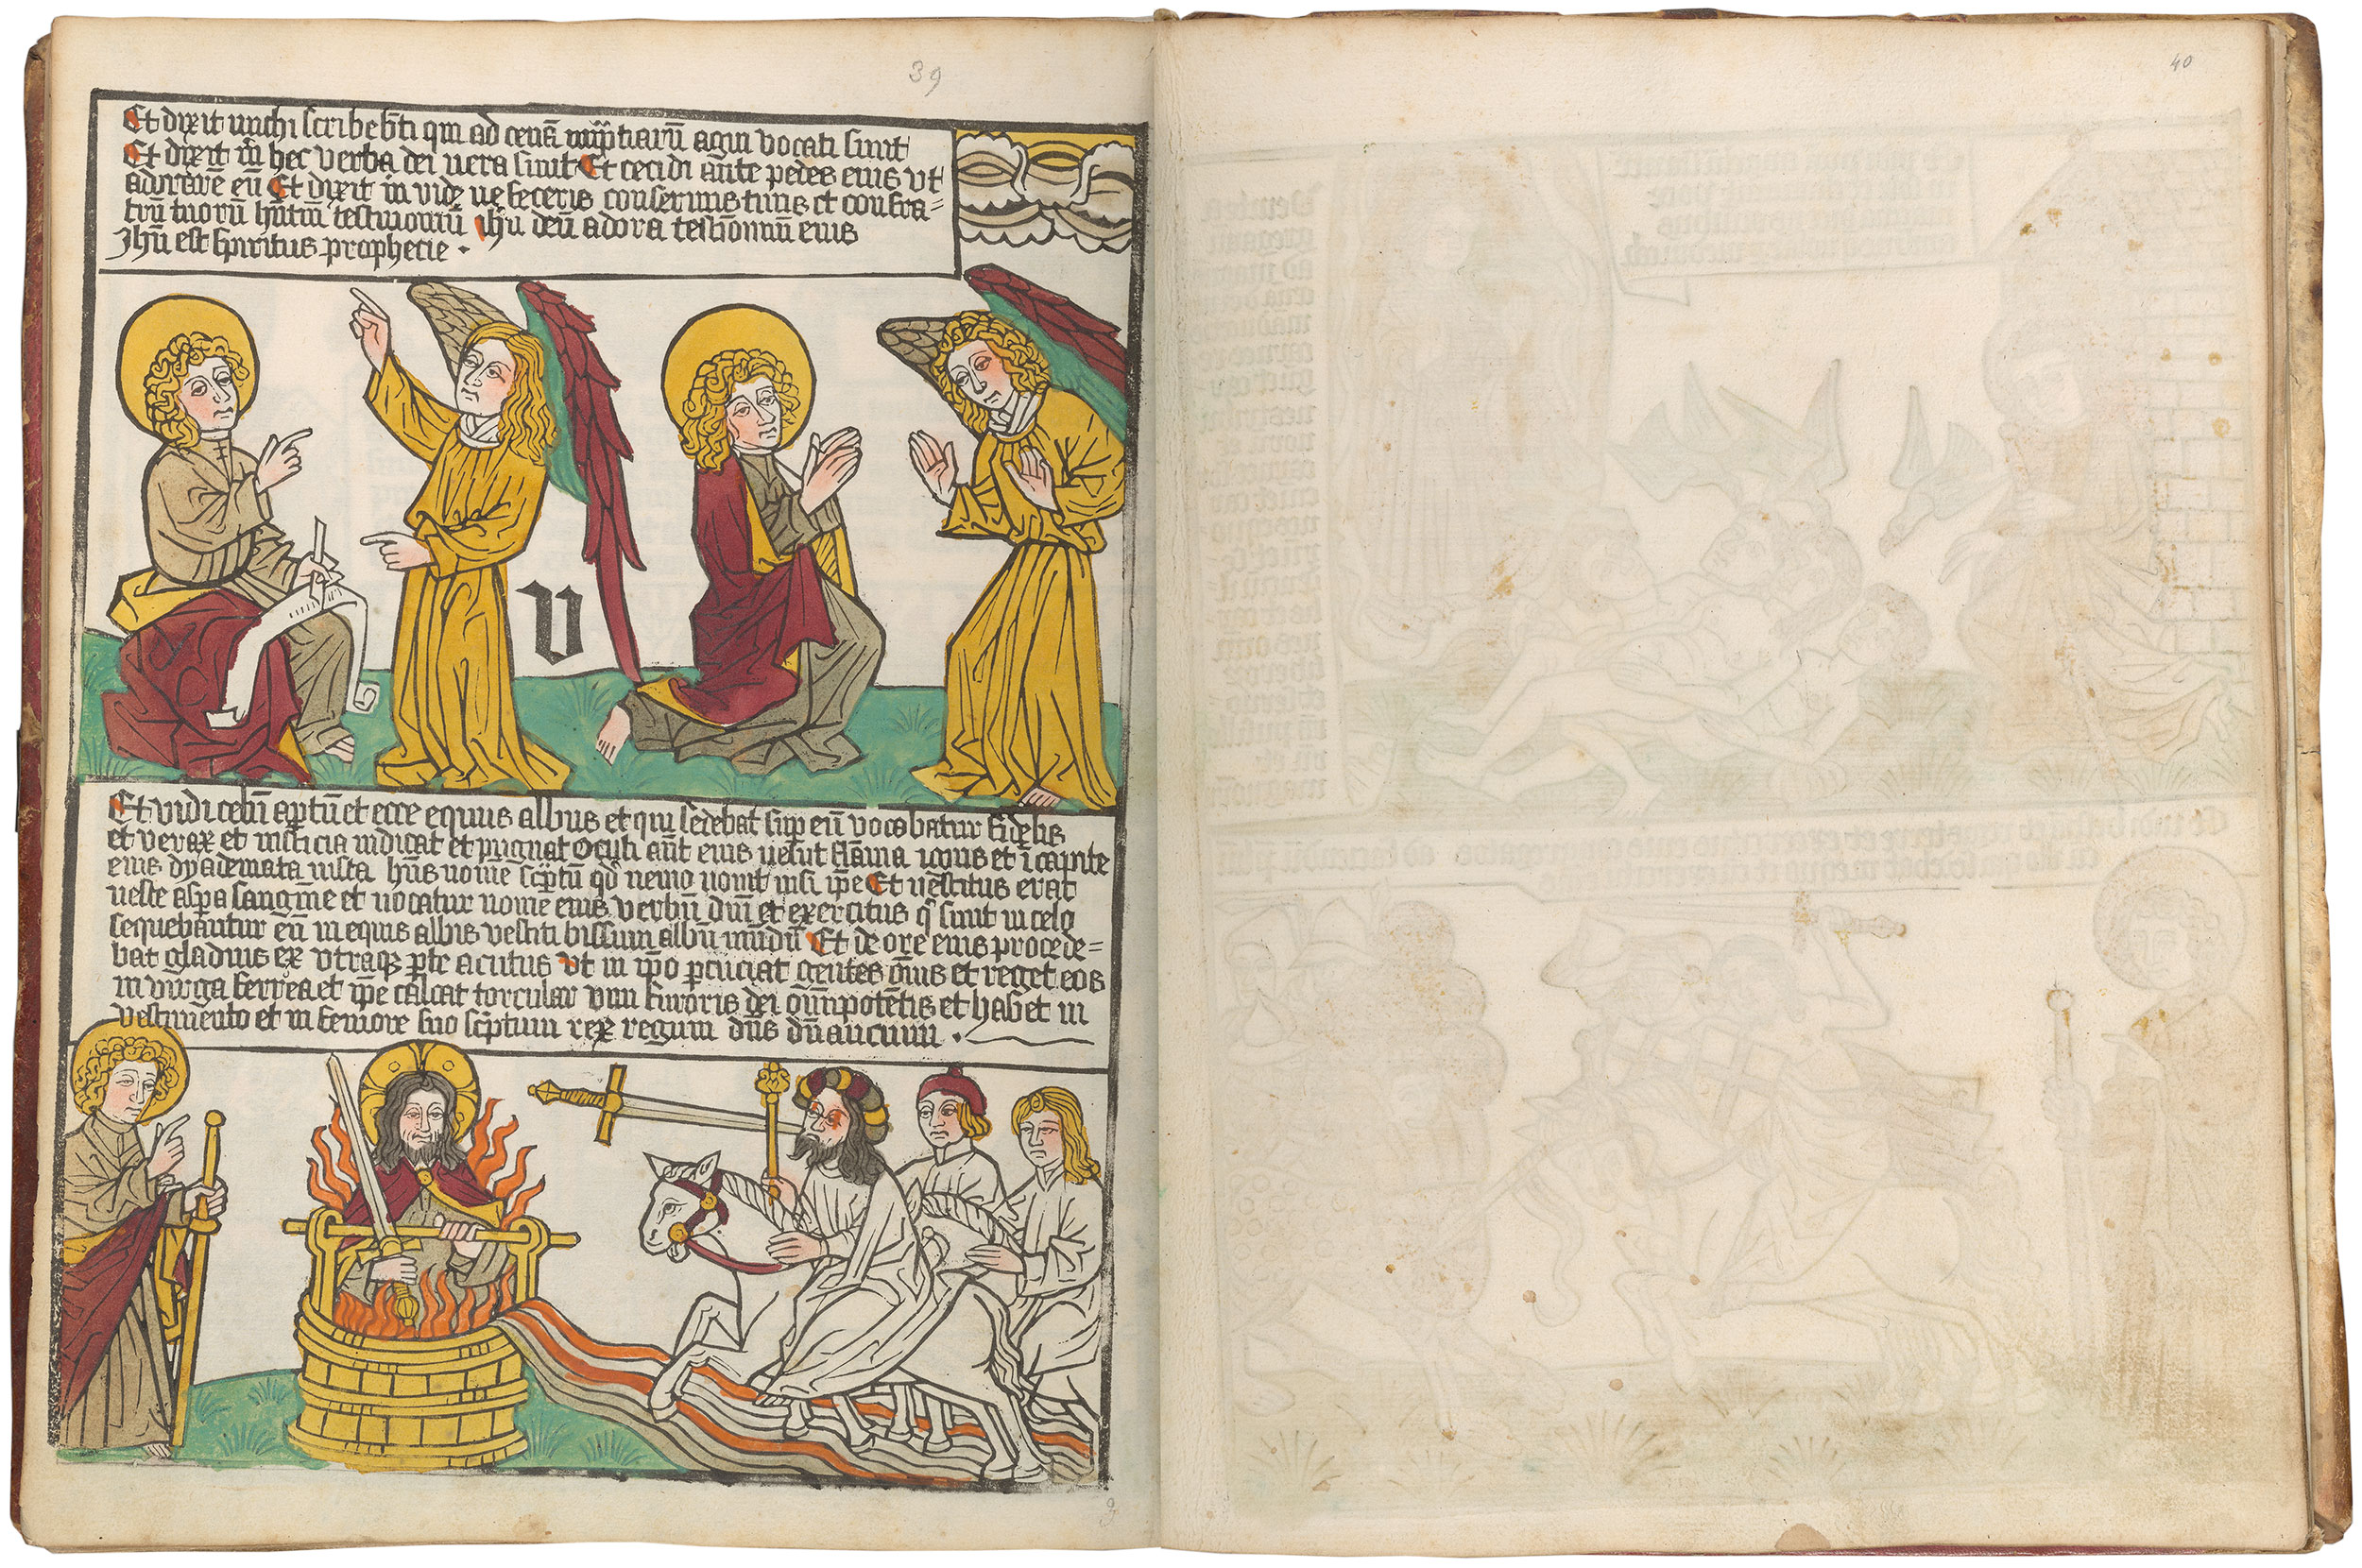 39
Et dixit michi scribe bti qui ad cenā nuptiarū agni vocati sunt
Et dixit m̄ hec verba dei vera sunt Et cecidi ante pedes eius vt
adorarē eū Et dixit m̄ vide ne feceris conseruus tuus et confra=
trū tuorū hn̄tiū testimoniū ihū deū adora testimoniū eius
Ihū est spiritus prophecie .
v
Et vidi celū aptū et ecce equus albus et qui sedebat sup eū vocabatur fidelis
et verax et iusticia iudicat et pugnat Oculi aūt eius velut flāma ignis et ī capite
eius dyademata multa hn̄s nomē scptū qd̄ nemo nouit nisi ipe Et vestitus erat
veste aspsa sanguine et vocatur nomē eius verbū dei et exercitus q̄ sunt in celo
sequebantur eū in equis albis vestiti bissum albū mūdū Et de ore eius procede=
bat gladius ex vtraqꝫ pte acutus vt in ipo pcuciat gentes oms et reget eos
in virga ferrea et ipe calcat torcular vini furoris dei omnipotētis et habet in
vestimento et in femore suo scptum rex regum dn̄s dn̄ancium .
40